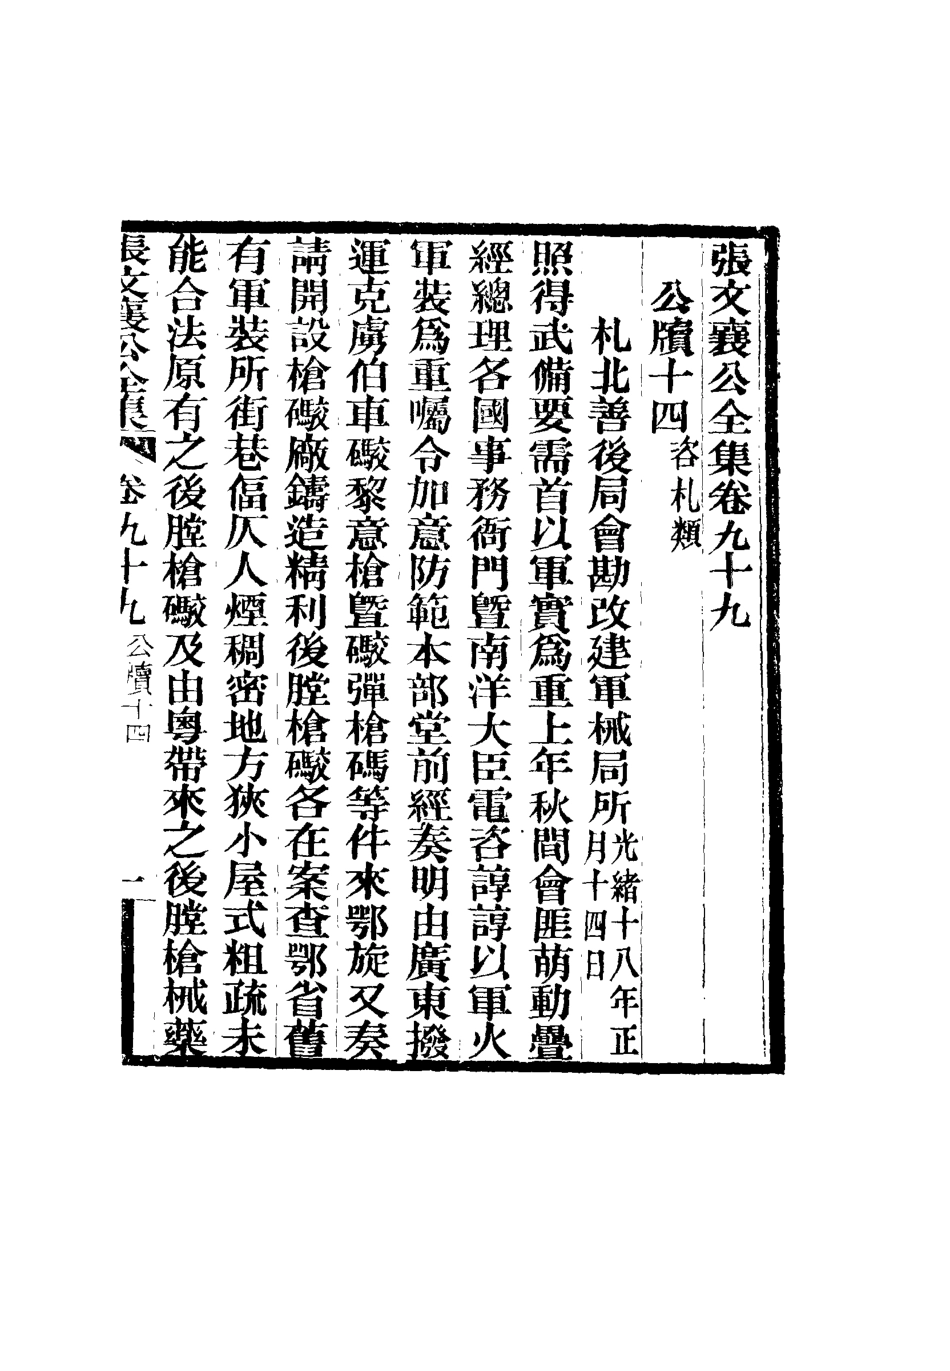 張文襄公全集卷九十九
公牘十四咨札類
札北善後局會勘改建軍械局所光緒十八年正月十四日
照得武備要需首以軍實爲重上年秋間會匪萌動疊
經總理各國事務衙門曁南洋大臣電咨諄諄以軍火
軍裝爲重囑令加意防範本部堂前經奏明由廣東撥
運克虜伯車礮黎意槍曁礮彈槍碼等件來鄂旋又奏
請開設槍礮廠鑄造精利後膛槍礮各在案查鄂省舊
有軍裝所街巷偪仄人煙稠密地方狹小屋式粗疏未
能合法原有之後膛槍礮及由粵帶來之後膛槍械藥
張文襄公全集 卷九十九 公牘十四 一